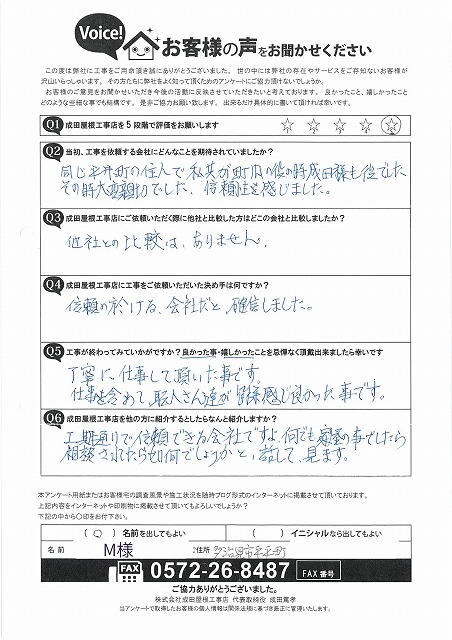 Voice!
お客様の声をお聞かせください
この度は弊社に工事をご用命頂き誠にありがとうございました。世の中には弊社の存在やサービスをご存知ないお客様が
沢山いらっしゃいます。その方たちに弊社をよく知って頂くためのアンケートにご協力頂けないでしょうか。
お客様のご意見をお聞かせいただき今後の活動に反映させていただきたいと考えております。良かったこと、嬉しかったこと
どのような些細な事でも結構です。是非ご協力お願い致します。出来るだけ具体的に書いて頂ければ幸いです。
Q1 成田屋根工事店を5段階で評価をお願いします ☆ ☆ ☆ ☆ ☆
Q2 当初、工事を依頼する会社にどんなことを期待されていましたか?
同じ平井町の住人で私共が町内の役の時成田様も役でした
その時大変親切でした、信頼性を感じました。
Q3 成田屋根工事店にご依頼いただく際に他社と比較した方はどこの会社と比較しましたか?
他社との比較は、ありません。
Q4 成田屋根工事店に工事をご依頼いただいた決め手は何ですか?
信頼の於ける、会社だと、確信しました。
Q5 工事が終わってみていかがですか?良かった事・嬉しかったことを忌憚なく頂戴出来ましたら幸いです
丁寧に、仕事して頂いた事です。
仕事を含めて、職人さん達が皆様感じ良かった事です。
Q6 成田屋根工事店を他の方に紹介するとしたらなんと紹介しますか?
工期通りで信頼できる会社ですよ、何でも家屋の事でしたら
相談されたら如何でしょうかと、話して、見ます。
本アンケート用紙またはお客様宅の調査風景や施工状況を随時ブログ形式のインターネットに掲載させて頂いております。
上記内容をインターネットや印刷物に掲載させて頂いてもよろしいでしょうか?
下記の中から〇印をお付下さい。
( 〇 ) 名前を出してもよい ( ) イニシャルなら出してもよい
名前 M様 ご住所 多治見市平井町
FAX 0572-26-8487 FAX番号
ご協力ありがとうございました。
株式会社成田屋根工事店 代表取締役 成田篤孝
当アンケートで取得したお客様の個人情報は関係法規に基づき厳正に管理いたします。